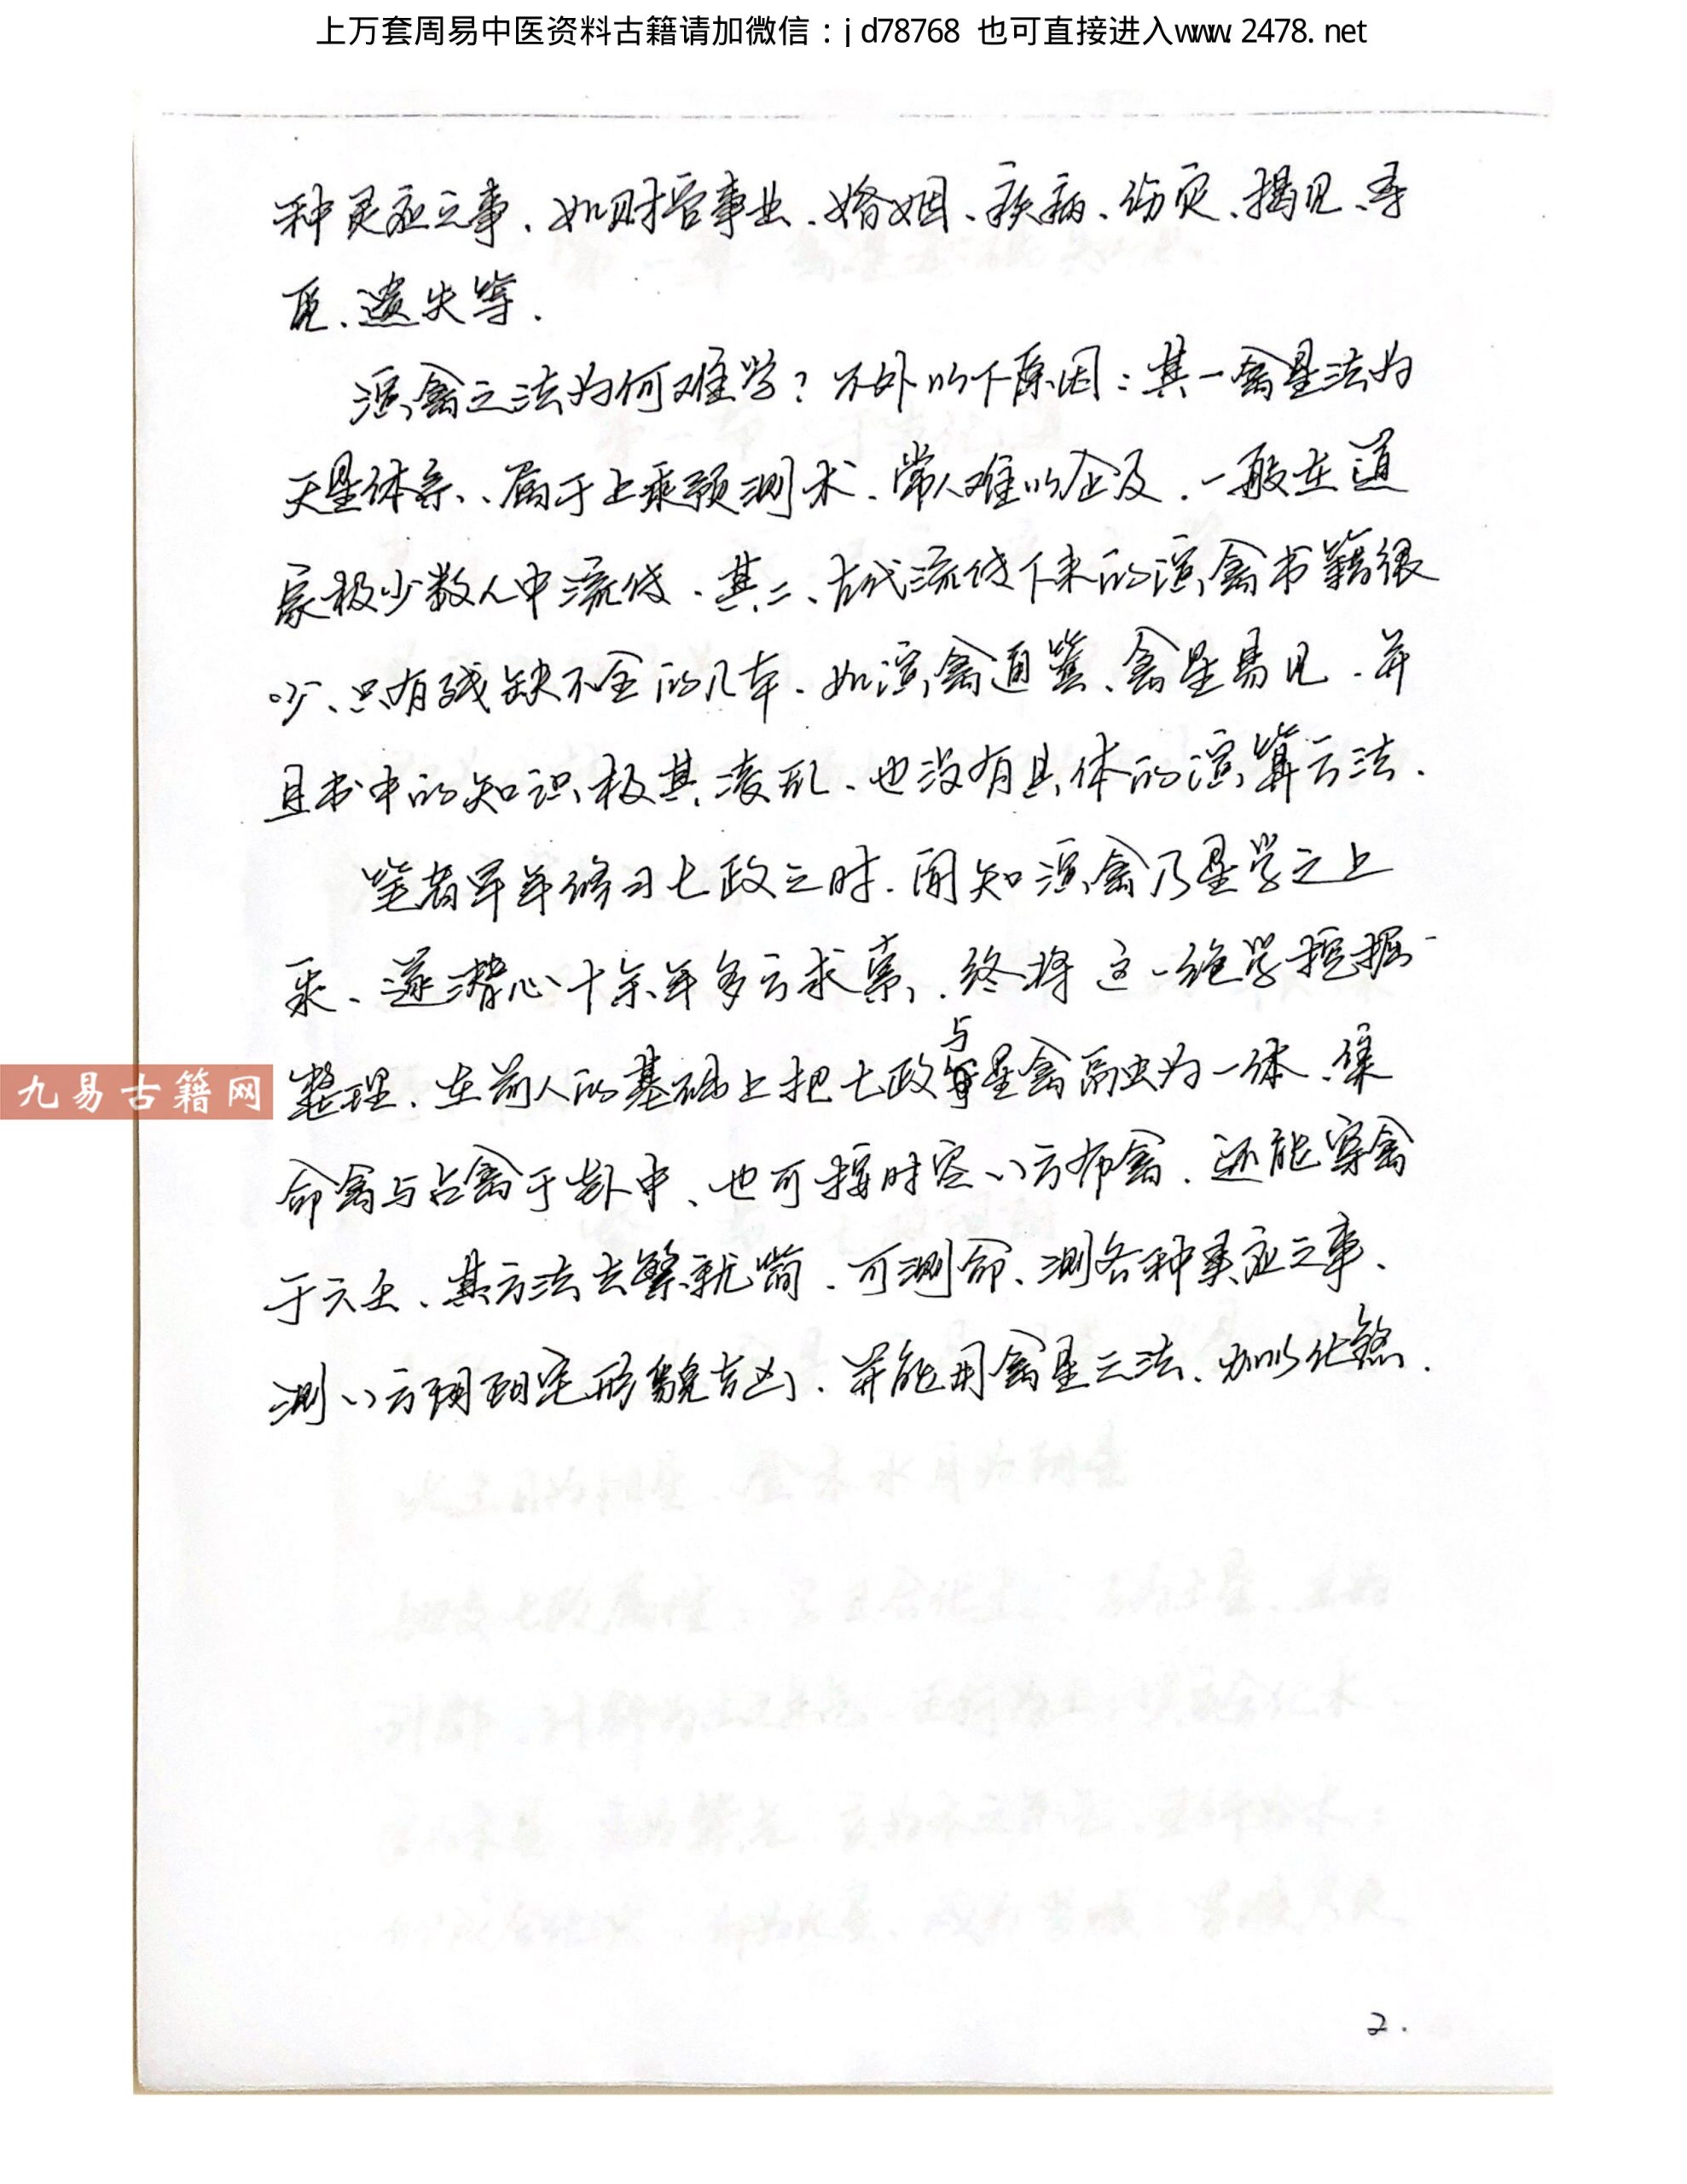 上万套周易中医资料古籍请加微信：jd78768 也可直接进入www.2478.net
种灵应之事、如财官事业、婚姻、疾病、伤灾、揭见、寻
觅、遗失等.
演禽之法为何难学？不外以下原因：其一禽星法为
天星体系、属于上乘预测术、常人难以企及．一般在道
家极少数人中流传．其二、古代流传下来的演禽书籍很
少、只有残缺不全的几本．如演禽通纂、禽星易见．并
且书中的知识极其凌乱、也没有具体的演算方法．
笔者早年修习七政之时．闻知演禽乃星学之上
乘、遂潜心十余年多方求索，终将这一绝学挖掘
整理．在前人的基础上把七政与星禽融为一体、集
命禽与占禽于卦中、也可按时空八方布禽．还能穿禽
于六壬、其方法去繁就简．可测命、测各种灵应之事、
测八方阴阳宅形貌吉凶．并能用禽星之法、加以化煞．
九易古籍网
2.